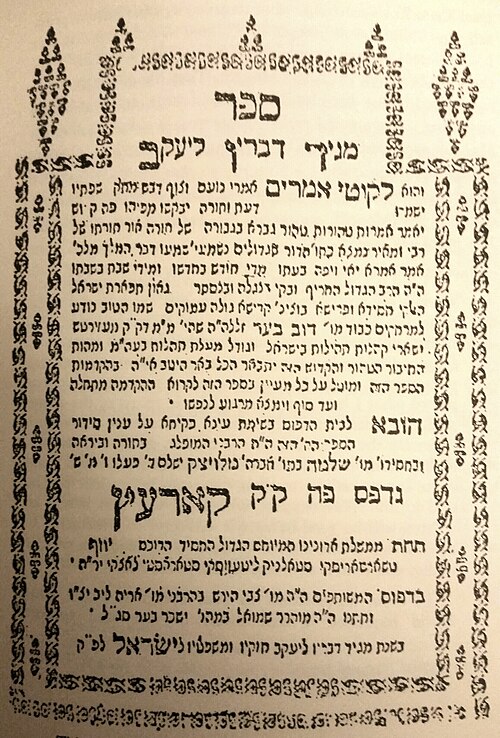 ספר
מגיד דבריו ליעקב
והוא לקוטי אמרים אמרי נועם וצוף דבש מתק שפתיו
ישמרו דעת ותורה יבקשו מפיהו פה ק׳ וש
יאמר אמרות טהורות טהור גברא בגבורה של תורה אור תורתו של
רבי ומאיר כתר הדור
אמר אמרא יאי ויפה בעתו מדי חודש בחדשו ומידי שבת בשבתו
ה״ה הרב הגדול החריף ובקי בנגלה ובנסתר גאון תפארת ישראל
חסידא ופרישא בוצינ׳ קדישא גולה עמוקים שמו הטוב נודע
למרחקים כבוד מו׳ דוב בער זללה״ה שהי׳ מ״מ דק״ק מעזריטש
ושארי קהלות תהילות בישראל וגודל מעלת תהלות בעה״מ ומהות
החיבור הטהור והקדוש הזה יתבאר הכל באר היטב אי״ה בהקדמות
הספר הזה ומוטל על כל מעיין בספר הזה לקרוא ההקדמה מתחלה
ועד סוף וימצא מרגוע לנפשו
הובא לבית הדפוס בשימת עינא בקיחא על ענין סידור
הספר הזה ה״ה הרבני המופלג בתורה וביראה
ובחסידו׳ מו׳ שלמה במו׳ אברה׳ מלויצק ישלם ד׳ פעלו
נדפס פה ק״ק קארעץ
תחת ממשלת אדונינו המיוחס הגדול החסיד הדוכס יוזף
טשארטאריסקי סטאלניק ליטעווסקי סטאראסטי לאצקי יר״ה
בדפוס המשותפים ה״ה מו׳ צבי הירש בהרבני מו׳ ארי׳ ליב
וחתנו ה״ה מוהרר שמואל במהו׳ ישכר בער סג״ל
בשנת מגיד דבריו ליעקב חוקיו ומשפטיו לישראל לפ״ק